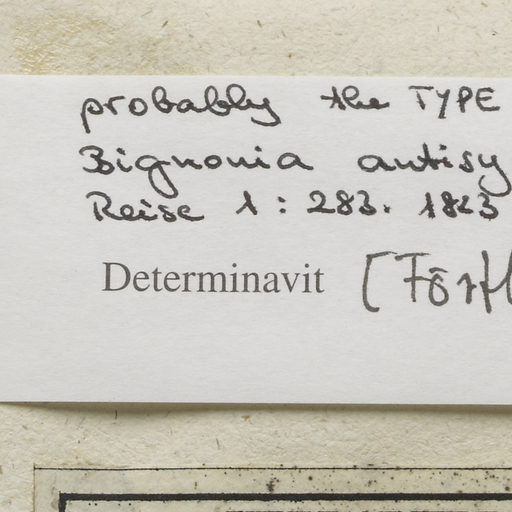 probably the TYPE
Bignonia antisy
Reise 1: 283. 1823
Determinavit [Förfl